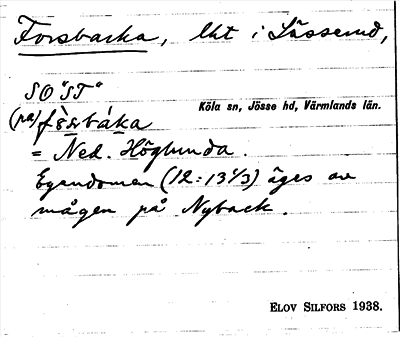 Forsbacka, lht i Lässerud,
SO "ST"
Köla sn, Jösse hd, Värmlands län.
(på) fòsbáka
= Ned. Höglunda.
Egendomen (12:13 1/3) äges av
mågen på Nyback.
ELOV SILFORS 1938.